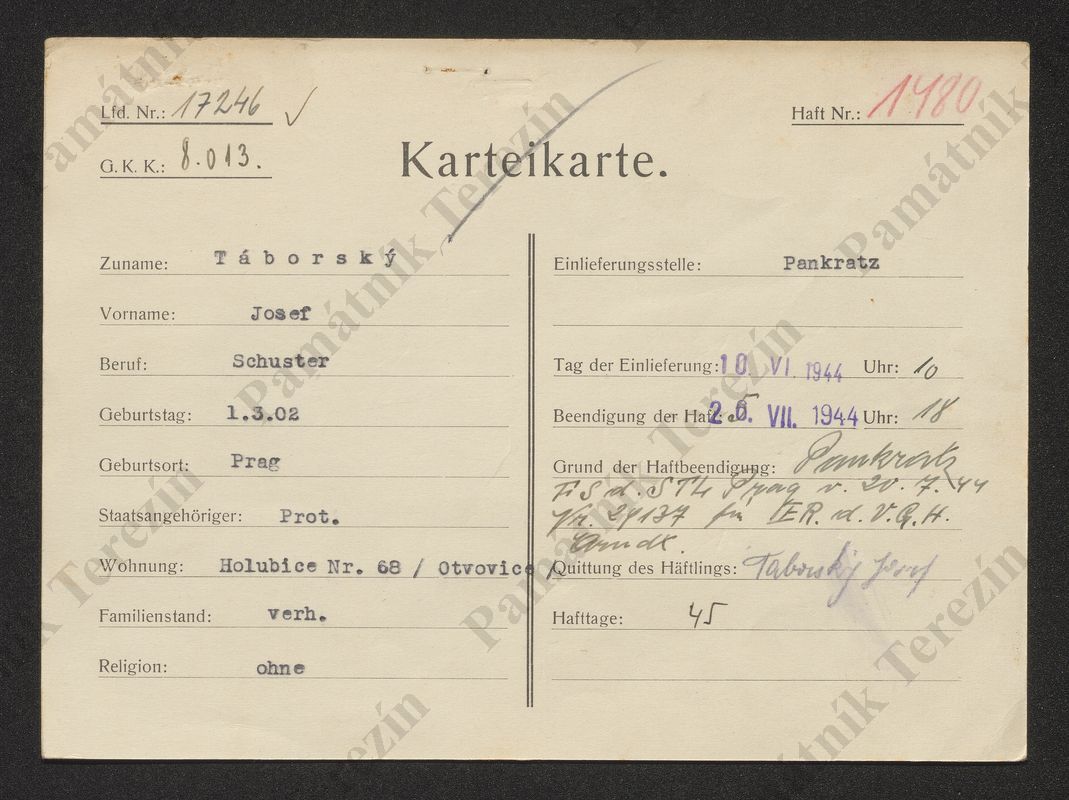 Lfd. Nr.: 17246 ✓
Haft Nr.: 1480
G. K. K.: 8.013.
Karteikarte.
Zuname: Táborský
Vorname: Josef
Beruf: Schuster
Geburtstag: 1.3.02
Geburtsort: Prag
Staatsangehöriger: Prot.
Wohnung: Holubice Nr. 68 / Otvovice /
Familienstand: verh.
Religion: ohne
Einlieferungsstelle: Pankratz
Tag der Einlieferung: 10. VI. 1944 Uhr: 10
Beendigung der Haft: 25. VII. 1944 Uhr: 18
Grund der Haftbeendigung: Pankratz
FS d. STL Prag v. 20. 7. 44
Nr. 29137 für IER. d. V.G.H.
Quittung des Häftlings: Táborský Josef
Hafttage: 45
Památník Terezín
Památník Terezín
Památník Terezín
Památník Terezín
Památník Terezín